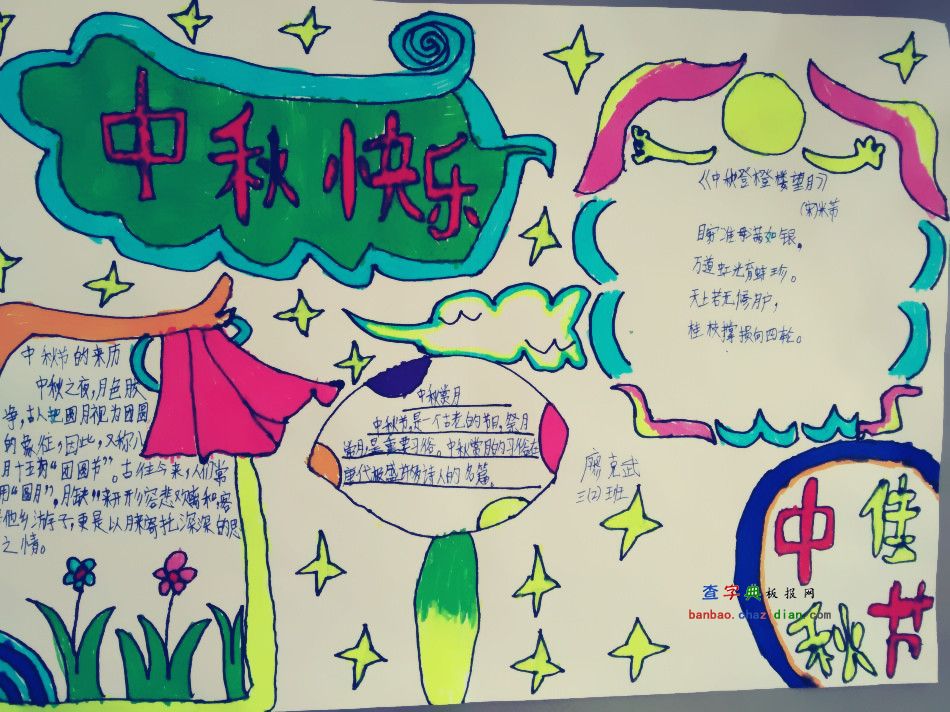 中秋快乐
《中秋登楼望月》
(宋)米芾
目穷淮海满如银。
万道虹光育蚌珍。
天上若无修月户,
桂枝撑损向西轮。
中秋节的来历
中秋之夜,月色皎
净,古人把圆月视为团圆
的象征,因此,又称八
月十五为“团圆节”。古往今来,人们常
用“圆月”、“月缺”来形容悲欢离和客
他乡游子,更是以月来寄托深深的思
之情。
中秋赏月
中秋节,是一个古老的节日,祭月
赏月是重要习俗。中秋赏月的习俗在
唐代极盛许诗人的名篇。
廖克武
三(2)班
中佳
秋节
查字典板报网
banbao.chazidian.com